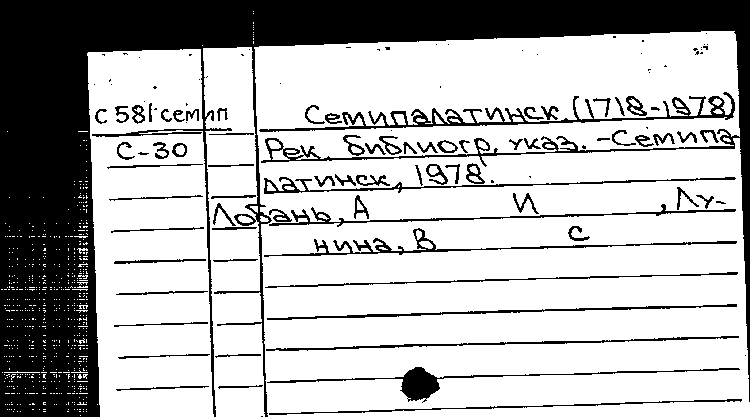 С581семип Семипалатинск. (1718-1978)
С-30 Рек. библиогр. указ. -Семипа-
латинск, 1978.
Лобань, А И , Лу-
нина, В С